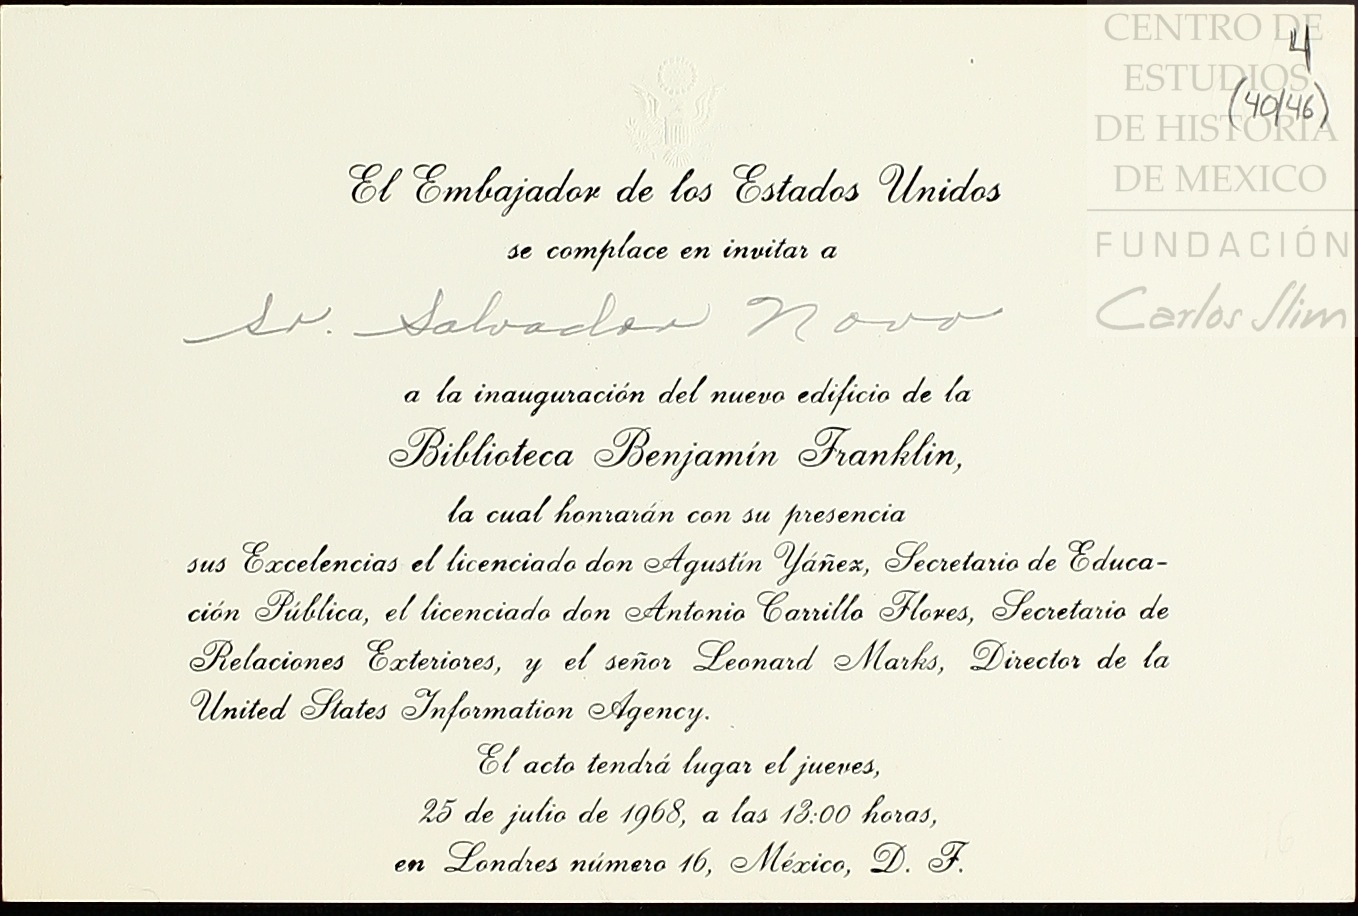 CENTRO DE
ESTUDIOS
DE HISTORIA
DE MEXICO
FUNDACIÓN
Carlos Slim
4
(40/46)
El Embajador de los Estados Unidos
se complace en invitar a
Sr. Salvador Novo
a la inauguración del nuevo edificio de la
Biblioteca Benjamín Franklin,
la cual honrarán con su presencia
sus Excelencias el licenciado don Agustín Yáñez, Secretario de Educa-
ción Pública, el licenciado don Antonio Carrillo Flores, Secretario de
Relaciones Exteriores, y el señor Leonard Marks, Director de la
United States Information Agency.
El acto tendrá lugar el jueves,
25 de julio de 1968, a las 13:00 horas,
en Londres número 16, México, D. F.
16